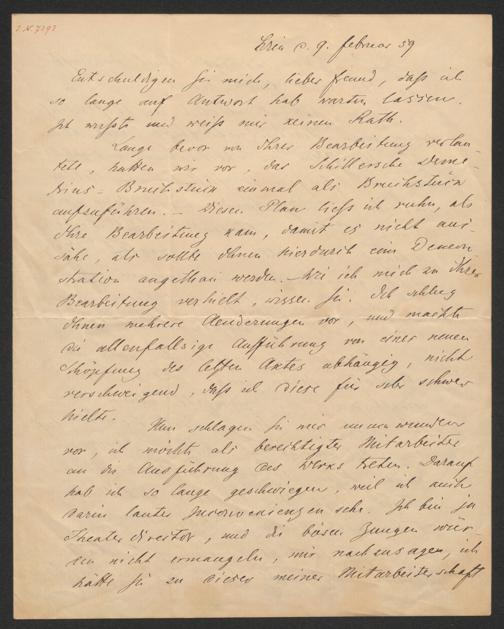 I. N. 7292
d. 9. Februar 59
Entschuldigen Sie mich, lieber Freund, daß ich
so lange auf Antwort hab warten lassen.
Ich wußte und weiß mir keinen Rath.
Lange bevor von Ihrer Bearbeitung verlau-
tete, hatten wir vor, das Schillersche Deme-
trius-Bruchstück einmal als Bruchstück
aufzuführen. – Diesen Plan ließ ich ruhn, als
Ihre Bearbeitung kam, damit es nicht aus-
sähe, als sollte Ihnen hierdurch eine Demon-
stration angethan werden. – Wie ich mich zu Ihrer
Bearbeitung verhielt, wissen Sie. Ich schlug
Ihnen mehrere Aenderungen vor, und machte
die allenfallsige Aufführung von einer neuen
Schöpfung des letzten Actes abhängig, nicht
verschweigend, daß ich diese für sehr schwer
hielte.
Nun schlagen Sie mir unumwunden
vor, ich möchte als berechtigter Mitarbeiter
an die Ausführung des Werks treten. Darauf
hab ich so lange geschwiegen, weil ich auch
darin lauter Inconvenienzen sehe. Ich bin ja
Theaterdirector, und die bösen Zungen wür-
den nicht ermangeln, mir nachzusagen, ich
hätte Sie zu dieser meiner Mitarbeiterschaft